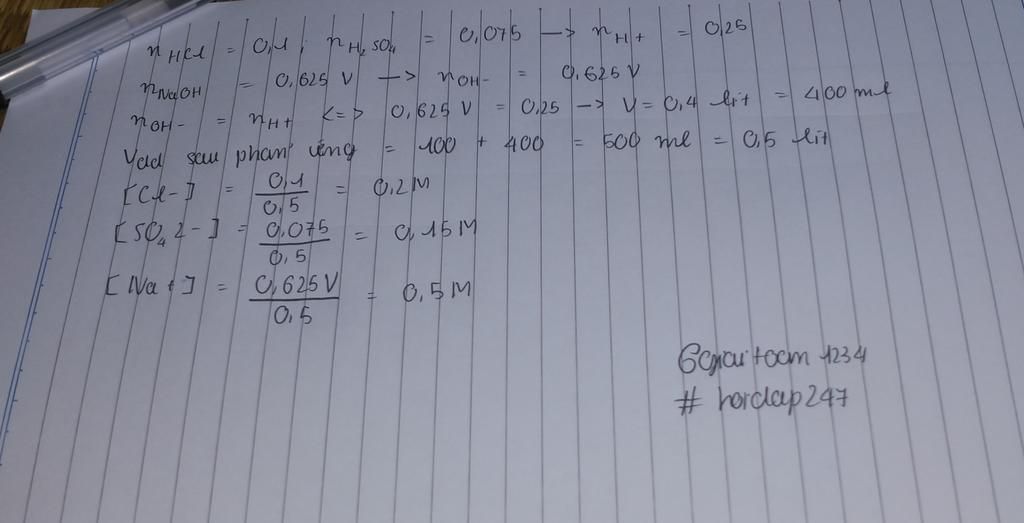 nHCl = 0,1 ; nH2SO4 = 0,075 -> nH+ = 0,25
nNaOH = 0,625 V -> nOH- = 0,625 V
nOH- = nH+ <=> 0,625 V = 0,25 -> V = 0,4 lit = 400 ml
Vdd sau phản ứng = 100 + 400 = 500 ml = 0,5 lit
[Cl-] = 0,1 / 0,5 = 0,2M
[SO4 2-] = 0,075 / 0,5 = 0,15M
[Na+] = 0,625V / 0,5 = 0,5M
1234
# hoidap247